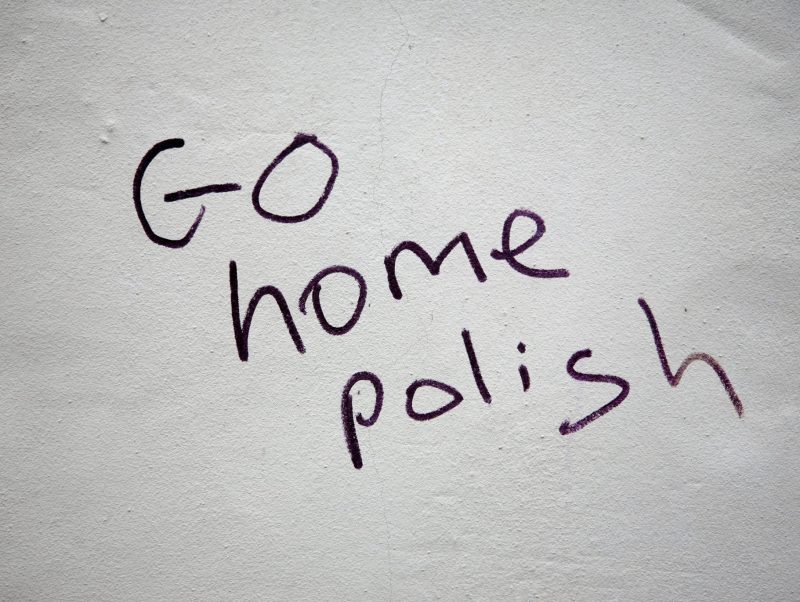 Go
home
polish